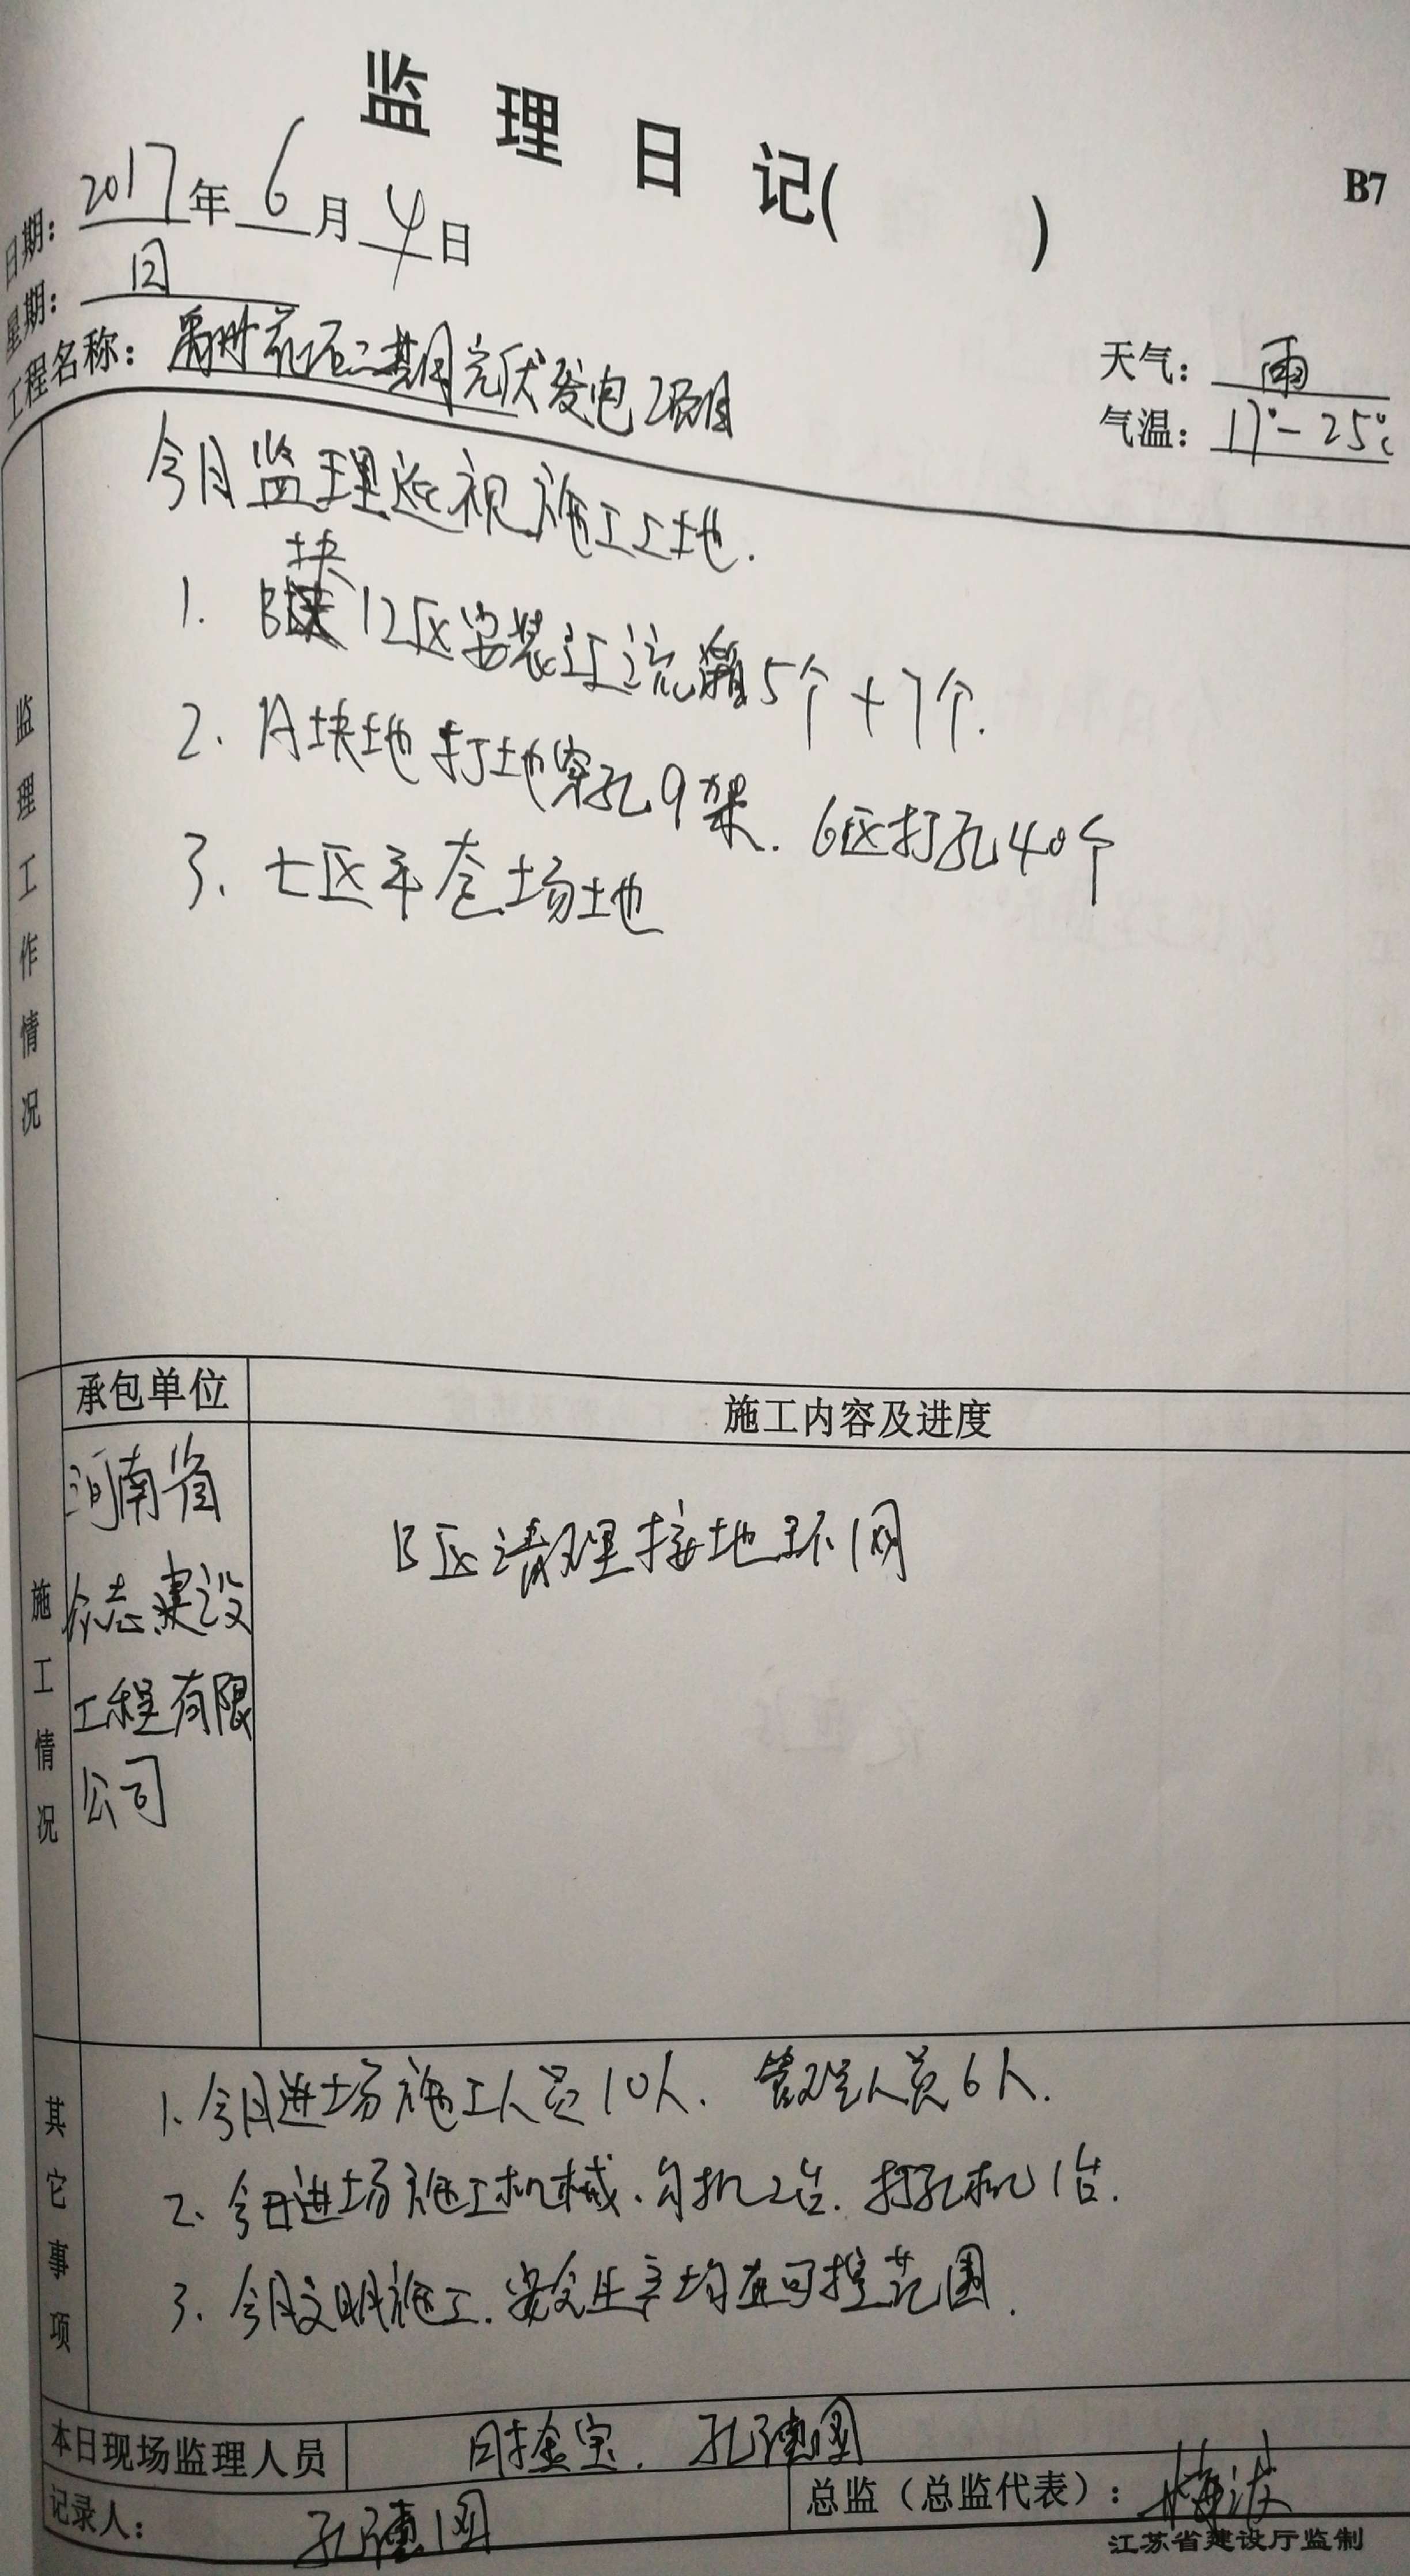 监理日记( )
B7
日期: 2017年6月4日
星期: 日
工程名称: 禹州苌庄二期光伏发电项目
天气: 雨
气温: 17°-25℃
监理工作情况
今日监理巡视施工工地.
1. B块12区安装汇流箱5个+7个.
2. A块地打地穿孔9架. 6区打孔40个
3. 七区平整场地
承包单位
施工内容及进度
施工情况
河南省
众志建设
工程有限
公司
B区清理接地环网
其它事项
1. 今日进场施工人员10人. 管理人员6人.
2. 今日进场施工机械. 勾机2台. 打孔机1台.
3. 今日文明施工. 安全生产均在可控范围.
本日现场监理人员
金宝. 孔德国
记录人: 孔德国
总监（总监代表）: 梅波
江苏省建设厅监制